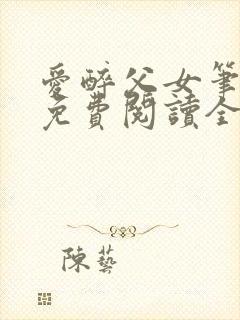 愛醉父女筆
免費閱讀全
陳藝